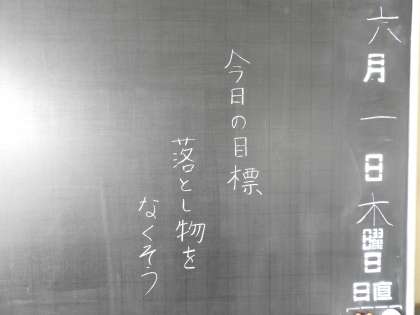 六月一日木曜日
日直
今日の目標
落とし物を
なくそう